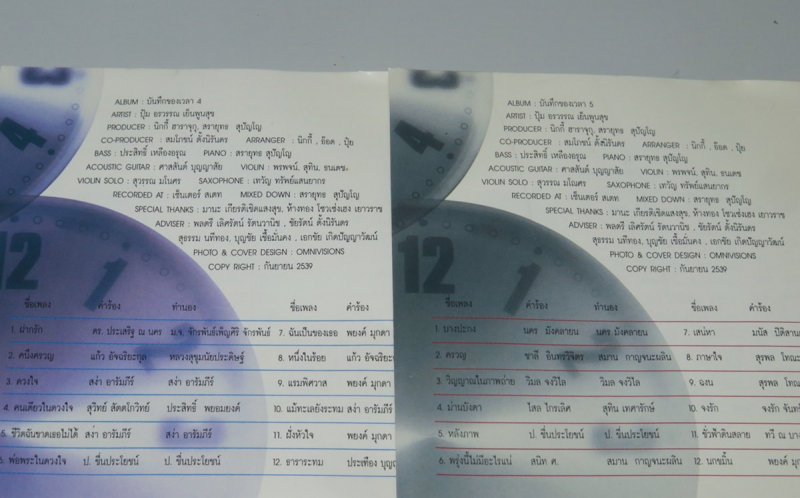 ALBUM : บันทึกของเวลา 4
ARTIST : ปุ้ม อรวรรณ เย็นพูนสุข
PRODUCER : นิกกี้ ฮาราจูกุ, สรายุทธ สุปัญโญ
CO-PRODUCER : สมโภชน์ ตั้งนิรันดร ARRANGER : นิกกี้ , อ๊อด , ปุ้ย
BASS : ประสิทธิ์ เหลืองอรุณ PIANO : สรายุทธ สุปัญโญ
ACOUSTIC GUITAR : ศาสสันต์ บุญญาสัย VIOLIN : พรพจน์, สุทิน, ธนเดช
VIOLIN SOLO : สุวรรณ มโนศร SAXOPHONE : เทวัญ ทรัพย์แสนยากร
RECORDED AT : เซ็นเตอร์ สเตท MIXED DOWN : สรายุทธ สุปัญโญ
SPECIAL THANKS : มานะ เกียรติเชิดแสงสุข, ห้างทอง โชวเซ่งเฮง เยาวราช
ADVISER : พลตรี เลิศรัตน์ รัตนวานิช , ชัยรัตน์ ตั้งนิรันดร
สุธรรม นทีทอง, บุญชัย เชื้อมั่นคง , เอกชัย เกิดปัญญาวัฒน์
PHOTO & COVER DESIGN : OMNIVISIONS
COPY RIGHT : กันยายน 2539
ชื่อเพลง คำร้อง ทำนอง ชื่อเพลง คำร้อง
1. ม่านรัก ดร. ประเสริฐ ณ นคร ม.จ. จักรพันธ์เพ็ญศิริ จักรพันธ์ 7. ฉันเป็นของเธอ พยงค์ มุกดา
2. คนึงครวญ แก้ว อัจฉริยะกุล หลวงสุขุมนัยประดิษฐ์ 8. หนึ่งในร้อย แก้ว อัจฉริยะ
3. ดวงใจ สง่า อารัมภีร์ สง่า อารัมภีร์ 9. แรมพิศวาส พยงค์ มุกดา
4. คนเดียวในดวงใจ สุวิทย์ สัตตโกวิทย์ ประสิทธิ์ พยอมยงค์ 10. แม้ทะเลยังระทม สง่า อารัมภีร์
5. ชีวิตฉันขาดเธอไม่ได้ สง่า อารัมภีร์ สง่า อารัมภีร์ 11. ฝั่งหัวใจ พยงค์ มุกดา
6. พ่อพระในดวงใจ ป. ชื่นประโยชน์ ป. ชื่นประโยชน์ 12. อาราระทม ประเทือง บุญญ
ALBUM : บันทึกของเวลา 5
ARTIST : ปุ้ม อรวรรณ เย็นพูนสุข
PRODUCER : นิกกี้ ฮาราจูกุ, สรายุทธ สุปัญโญ
CO-PRODUCER : สมโภชน์ ตั้งนิรันดร ARRANGER : นิกกี้ , อ๊อด , ปุ้ย
BASS : ประสิทธิ์ เหลืองอรุณ PIANO : สรายุทธ สุปัญโญ
ACOUSTIC GUITAR : ศาสสันต์ บุญญาสัย VIOLIN : พรพจน์, สุทิน, ธนเดช
VIOLIN SOLO : สุวรรณ มโนศร SAXOPHONE : เทวัญ ทรัพย์แสนยากร
RECORDED AT : เซ็นเตอร์ สเตท MIXED DOWN : สรายุทธ สุปัญโญ
SPECIAL THANKS : มานะ เกียรติเชิดแสงสุข, ห้างทอง โชวเซ่งเฮง เยาวราช
ADVISER : พลตรี เลิศรัตน์ รัตนวานิช , ชัยรัตน์ ตั้งนิรันดร
สุธรรม นทีทอง, บุญชัย เชื้อมั่นคง , เอกชัย เกิดปัญญาวัฒน์
PHOTO & COVER DESIGN : OMNIVISIONS
COPY RIGHT : กันยายน 2539
ชื่อเพลง คำร้อง ทำนอง ชื่อเพลง คำร้อง
1. บางปะกง นคร มังคลายน นคร มังคลายน 7. เสน่หา มนัส ปิติสาน
2. ครวญ ชาลี อินทรวิจิตร สมาน กาญจนะผลิน 8. ภาษาใจ สุรพล โทณ
3. วิญญาณในภาพถ่าย วิมล จงวิไล วิมล จงวิไล 9. ฉงน สุรพล โทณ
4. ม่านบังตา ไสล ไกรเลิศ สุทิน เทศารักษ์ 10. จงรัก จงรัก จันทร์
5. หลังภาพ ป. ชื่นประโยชน์ ป. ชื่นประโยชน์ 11. ชั่วฟ้าดินสลาย ทวี ณ บาง
6. พรุ่งนี้ไม่มีอะไรแน่ สนิท ศ. สมาน กาญจนะผลิน 12. นกขมิ้น พยงค์ มุก